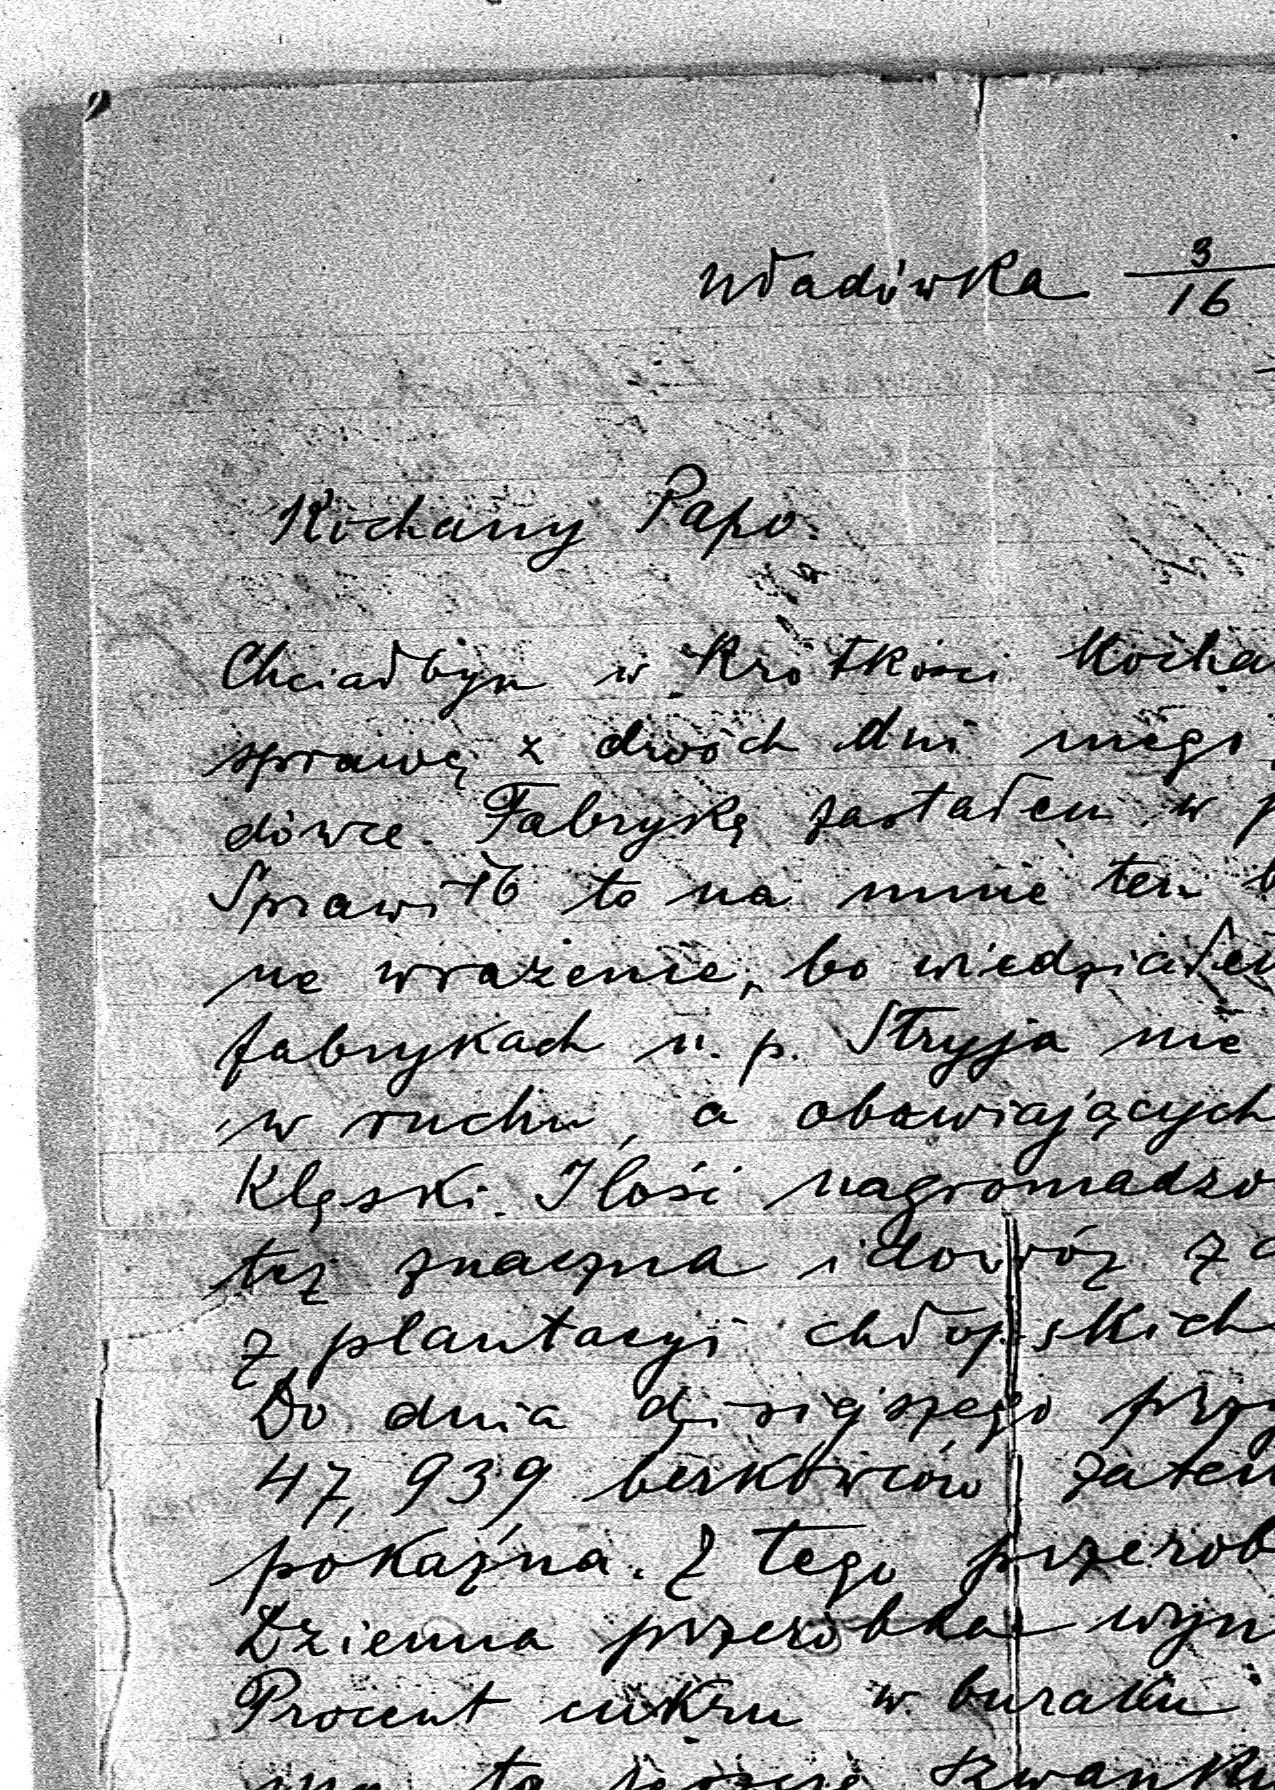 Uładówka 3/16
Kochany Papo.
Chciałbym w krótkości Kocha
sprawę z dwóch dni mego
dówce. Fabrykę zastałem w p
Sprawiło to na mnie ten b
ne wrażenie, bo wiedziałem
fabrykach n. p. Stryja nie
w ruchu, a obawiających
Klęski. Ilość nagromadzo
też znaczna i dowóz za
z plantacyi chłopskich
Do dnia dzisiejszego prze
47,939 berkowców zatem
pokaźna. Z tego przerob
Dzienna przeróbka wyn
Procent cukru w buraku
to jeszcze